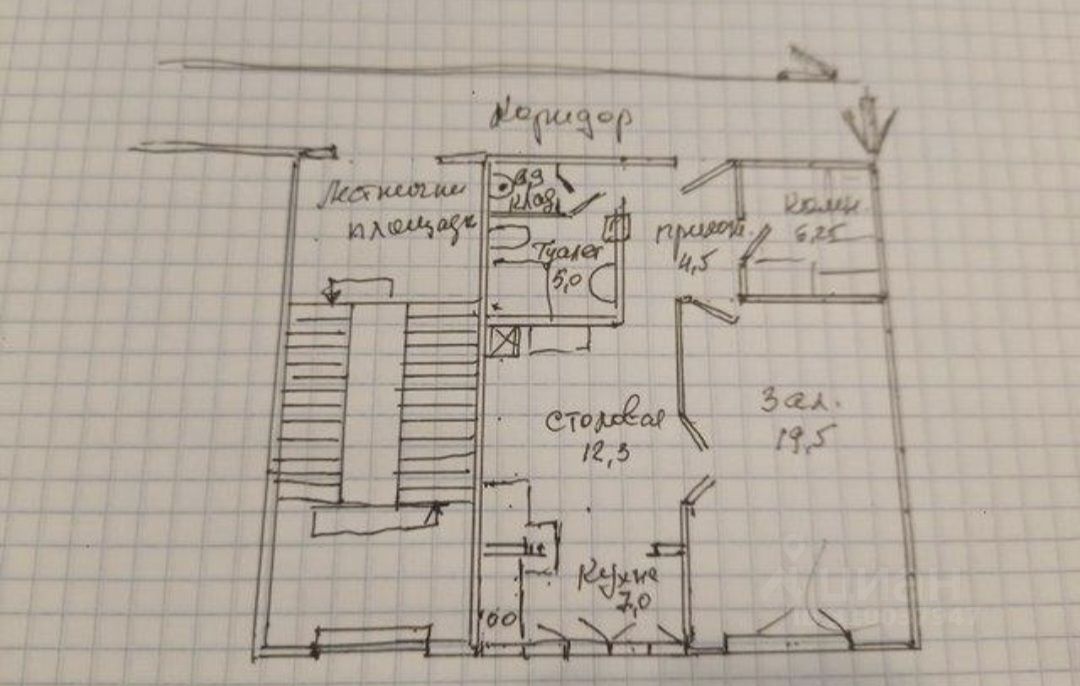 Коридор
Лестнична
площадк
клад
Туалет
5,0
прихож.
4,5
Комн
6,25
столовая
12,3
Зал.
19,5
Кухне
7,0
циан